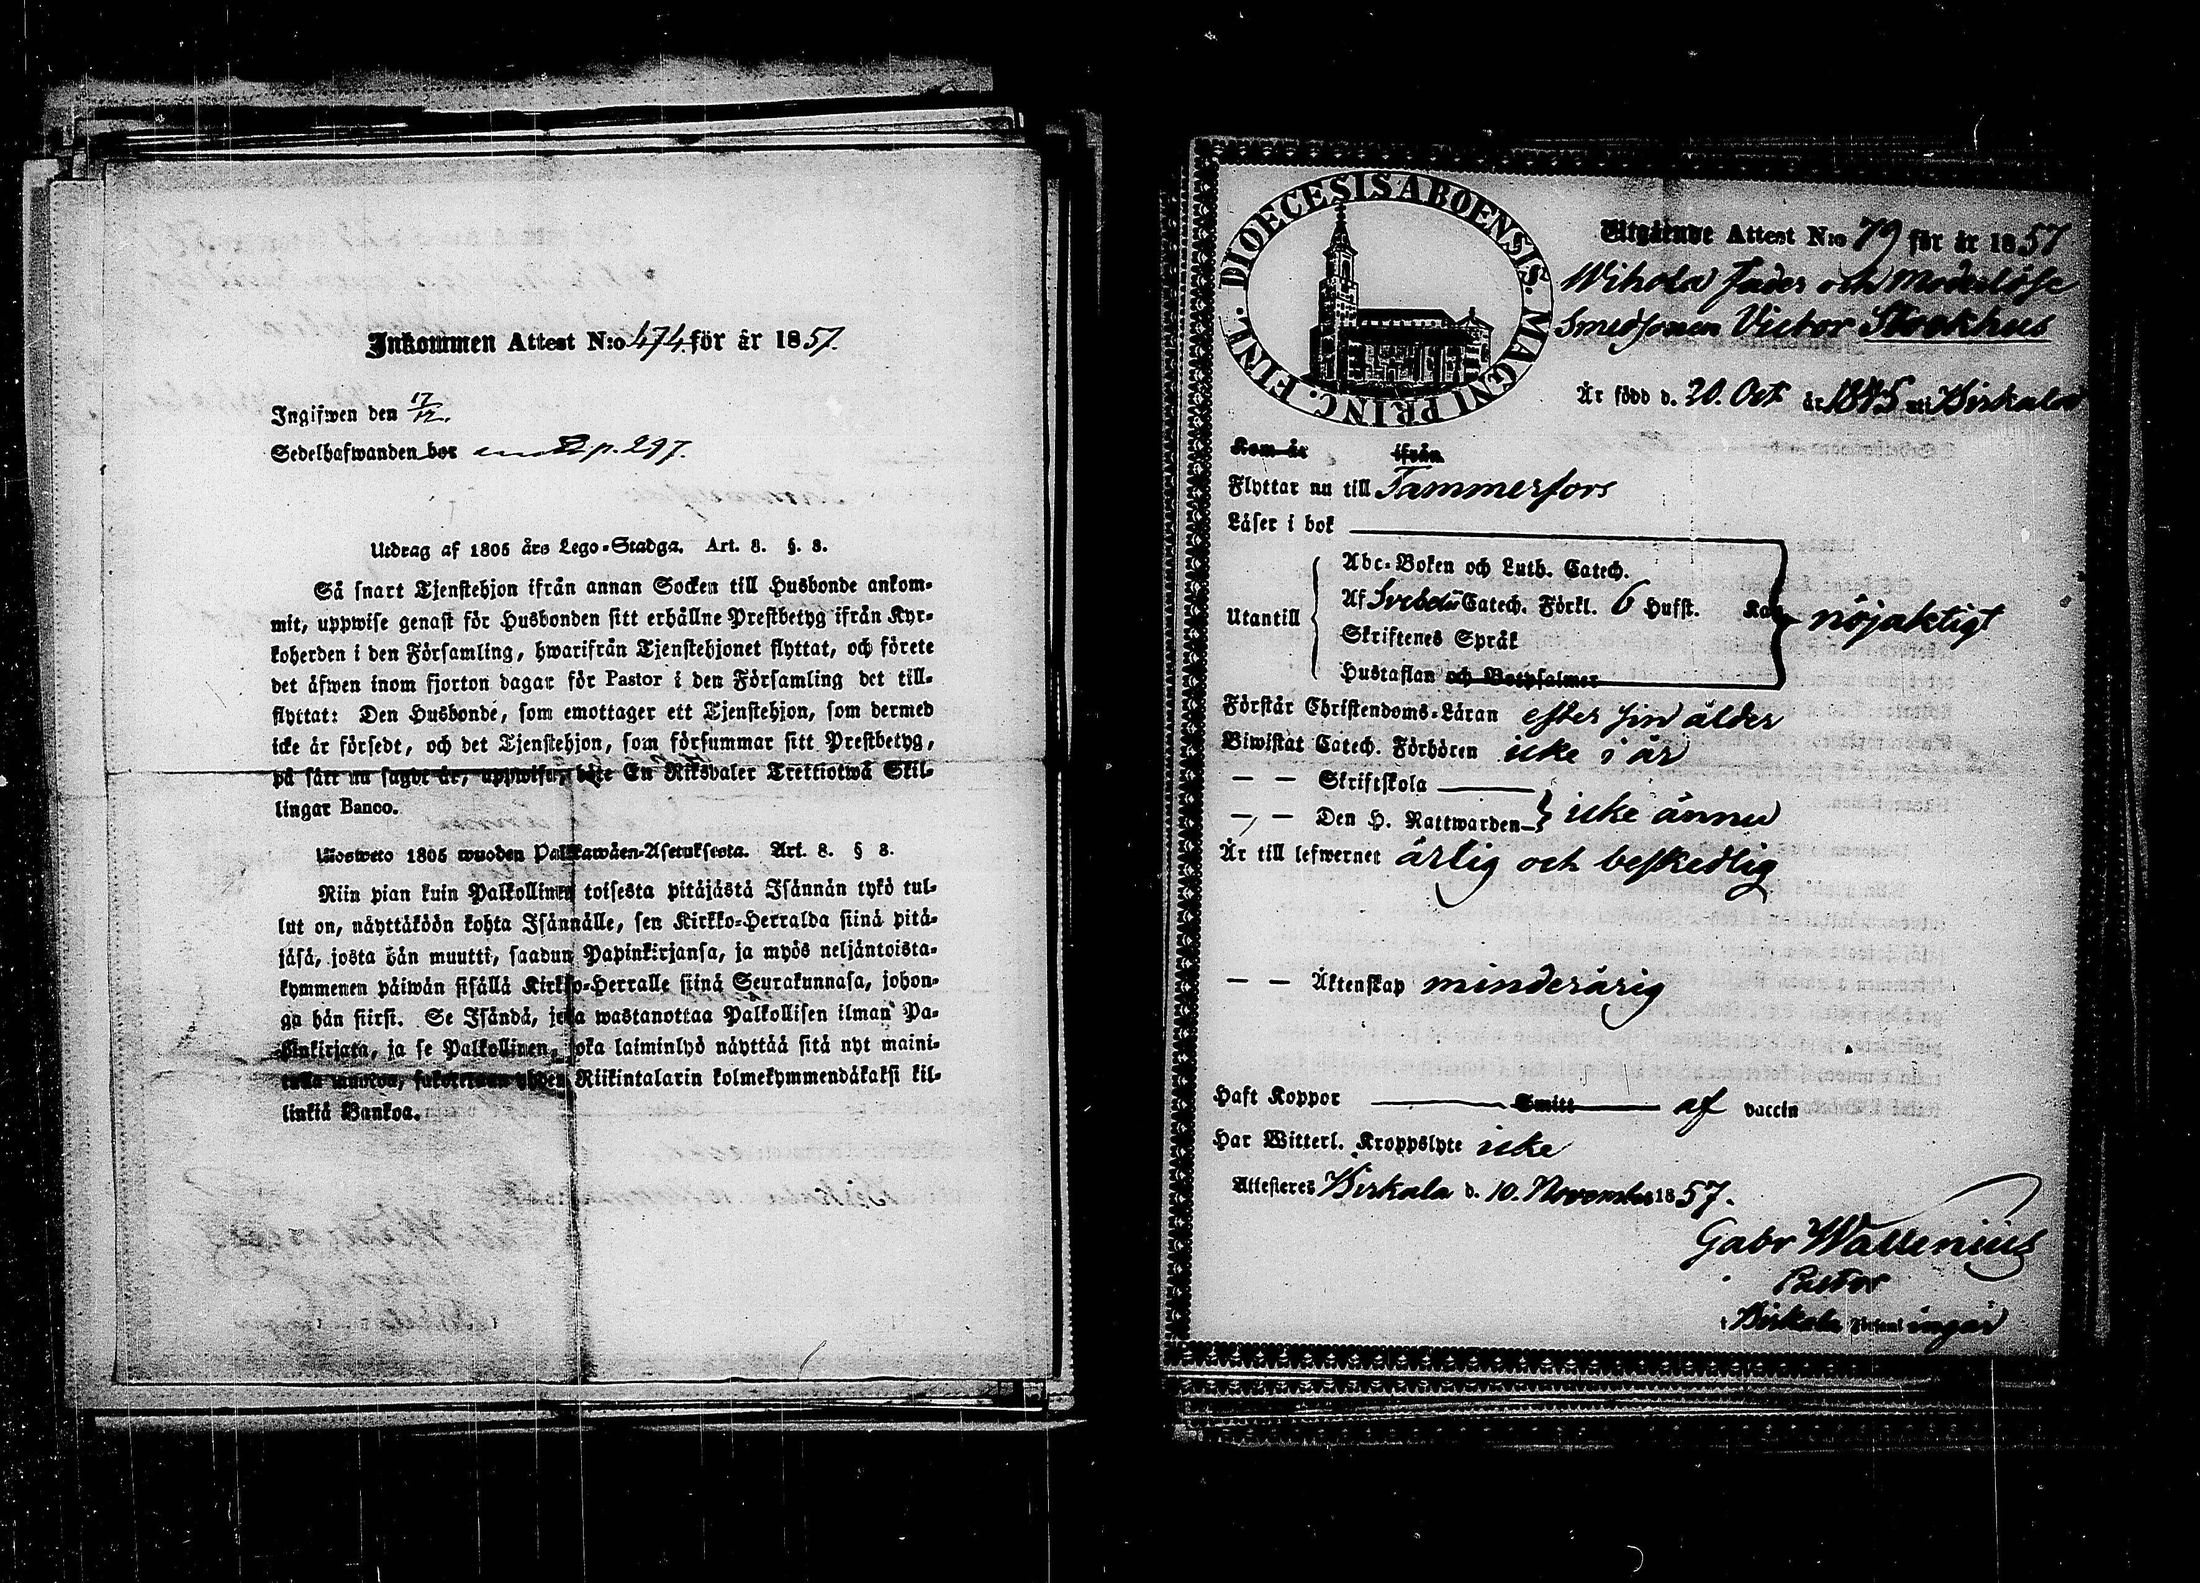 Inkommen Attest N:o 474. för år 1857.
Ingifwen den 17/12.
Sedelhafwanden bor p. 297.
Utdrag af 1805 års Lego-Stadga. Art. 8. §. 8.
Så snart Tjenstehjon ifrån annan Socken till Husbonde ankom-
mit, uppwise genast för Husbonden sitt erhållne Prestbetyg ifrån Kyr-
koherden i den Församling, hwarifrån Tjenstehjonet flyttat, och förete
det äfwen inom fjorton dagar för Pastor i den Församling det till-
flyttat: Den Husbonde, som emottager ett Tjenstehjon, som dermed
icke är försedt, och det Tjenstehjon, som försummar sitt Prestbetyg,
på sätt nu sagdt är, uppwisa, böte En Riksdaler Trettiotwå Skil-
lingar Banco.
Uloswето 1805 wuoden Palkkawäen-Asetuksesta. Art. 8. § 8.
Niin pian kuin Palkollinen toisesta pitäjästä Isännän tykö tul-
lut on, näyttäköön kohta Isännälle, sen Kirkko-Herralda siinä pitä-
jäsä, josta hän muutti, saadun Papinkirjansa, ja myös neljäntoista-
kymmenen päiwän sisällä Kirkko-Herralle siinä Seurakunnasa, johon-
ga hän siirsi. Se Isändä, joka wastanottaa Palkollisen ilman Pa-
pinkirjata, ja se Palkollinen, joka laiminlyö näyttää sitä nyt maini-
tulla muoton, sakotetaan yhden Riikintalarin kolmekymmendäkaksi kil-
linkiä Bankoa.
DIOECESIS ABOENSIS. MAGNI PRINC. FINL.
Utgående Attest N:o 79 för år 1857
Wihola Fader och Moderlöse
Smedsonen Victor Stockhus
Är född d. 20. Oct år 1845 uti Birkala
Kom år ifrån
Flyttar nu till Tammerfors
Läser i bok
Abc-Boken och Luth. Catech.
Utantill Af Svebelii Catech. Förkl. 6 Hufst. Kan nöjaktigt
Skriftenes Språk
Hustaflan och Botpsalmer
Förstår Christendoms-Läran efter sin ålder
Biwistat Catech. Förhören icke i år
— — Skriftskola
— — Den H. Nattwarden icke ännu
Är till lefwernet ärlig och beskedlig
— — Äktenskap minderårig
Haft Koppor Smitt af vaccin
Har Witterl. Kroppslyte icke
Attesteres Birkala d. 10. November 1857.
Gabr Wallenius
Pastor
i Birkala Församlingar